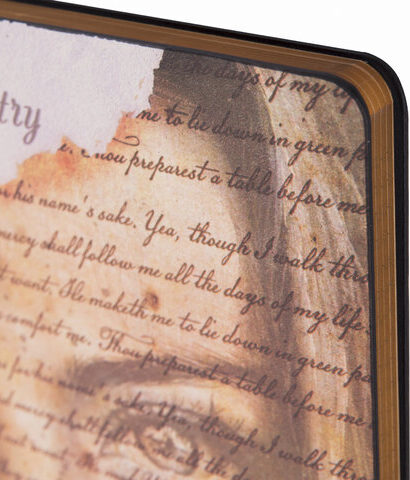 days of my life
try
me to lie down in green
Thou preparest a table before me
his name's sake. Yea, though I walk thro
mercy shall follow me all the days of my life.
t want. He maketh me to lie down in green pa
comfort me. Thou preparest a table before me
for his name's sake. Yea, though I walk th
mercy shall follow me all the days